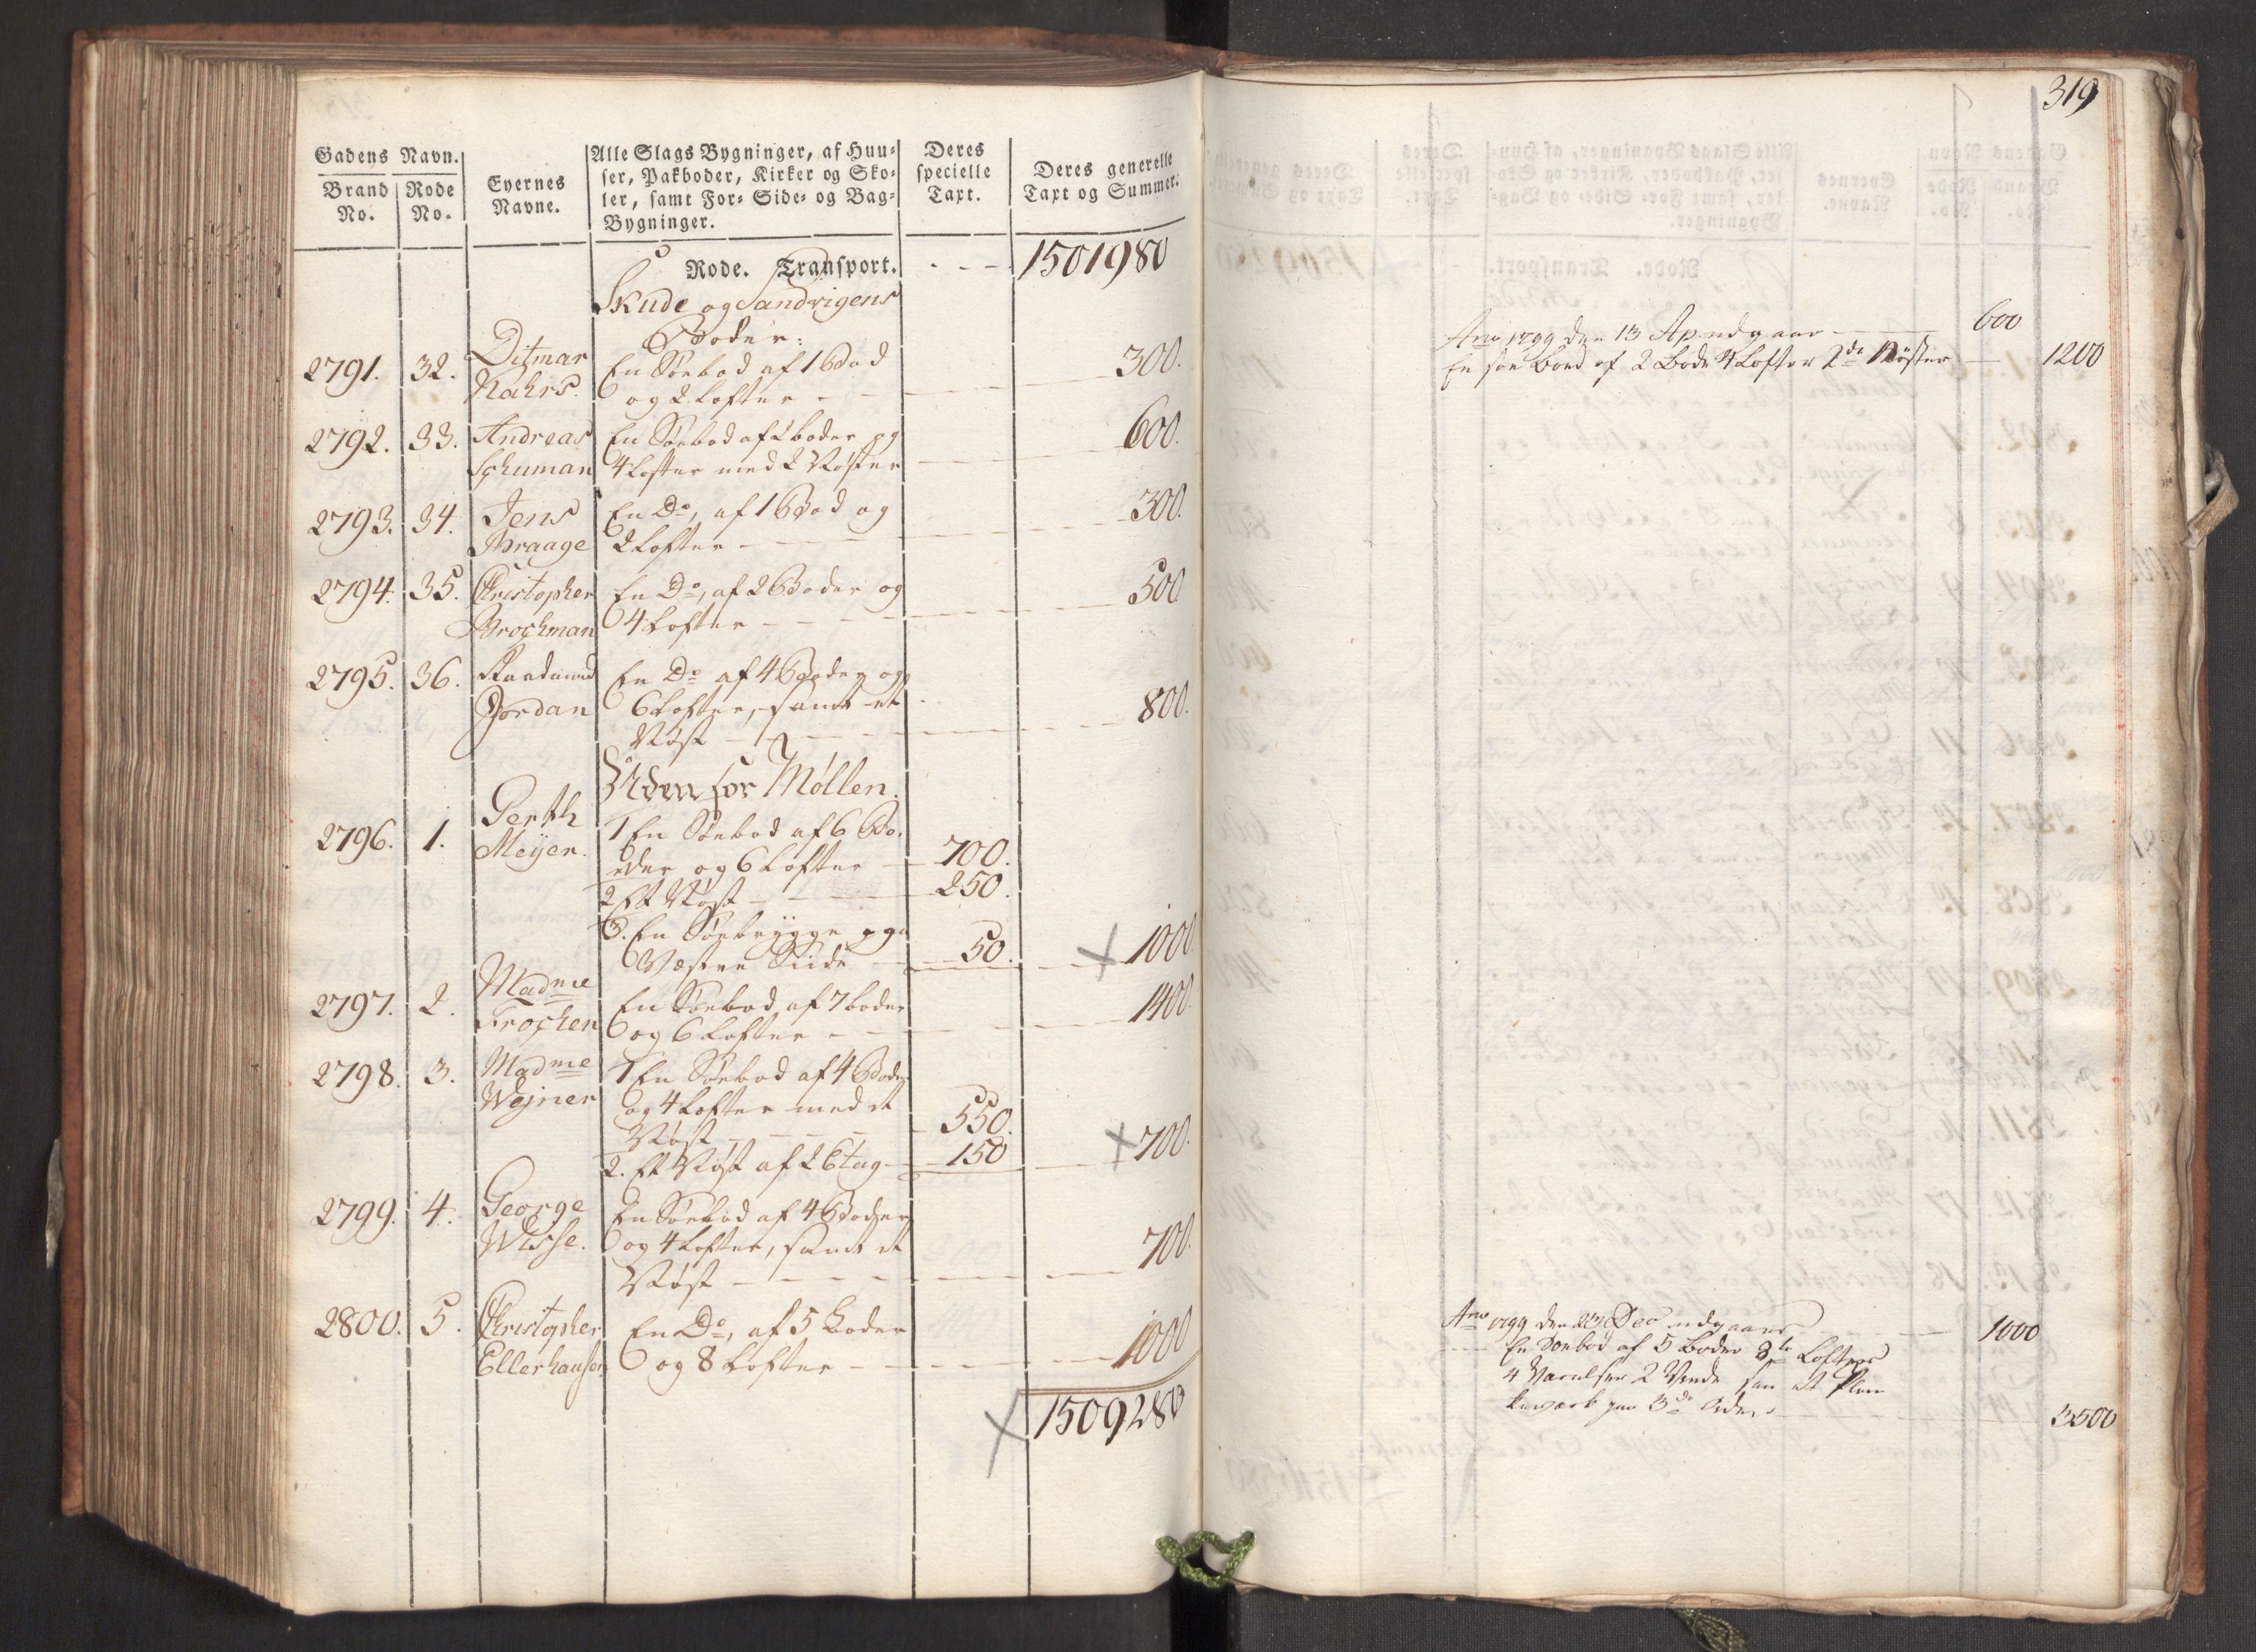 Gadens Navn.
Brand No.
Rode No.
Eyernes Navne.
Alle Slags Bygninger, af Huu-
ser, Pakboder, Kirker og Sko-
ler, samt For- Side- og Bag-
Bygninger.
Deres
specielle
Taxt.
Deres generelle
Taxt og Summer.
Rode. Transport. 1501980
Skude og Sandvigens
Boder:
2791. 32. Ditmar En Søebod af 1 Bod 300.
Kahrs. og 2 Lofter
2792. 33. Andreas En Søebod af 2 boder og 600.
Schuman 4 Lofter med 2 Røster
2793. 34. Jens En Do, af 1 Bod og 300.
Braage 2 Lofter
2794. 35. Christopher En Do, af 2 Boder og 500
Brochman 4 Lofter
2795. 36. Raadmand En Do af 4 Boder og
Jordan 6 Lofter, samt et 800.
Røst
Uden for Møllen.
2796. 1. Gerth 1 En Søebod af 6 Bo-
Meyer. der og 6 Lofter 700.
2 Et Røst 250.
3. En Søebrygge paa
Væstre Siide 50. 1000
2797. 2. Madme En Søebod af 7 boder 1400.
Krochen og 6 Lofter
2798. 3. Madme 1 En Søebod af 4 Boder
Wejner og 4 Lofter med et
Røst 550.
2. Et Røst af 2 Etag 150 700.
2799. 4. George En Søebod af 4 Boder
Wisse. og 4 Lofter, samt et 700.
Røst
2800. 5. Christopher En Do, af 5 Boder
Ellerhausen og 8 Lofter 1000
1509280
319
Ano 1799 den 13 Ap udgaar 600
En søe Boed af 2 Bode 4 Lofter 2de Röster 1200
Ano 1799 den 23 Dec udgaaer 1000
En Søebod af 5 Boder 8te Lofter
4 2 et Plan
kewærk paa 3de 3500